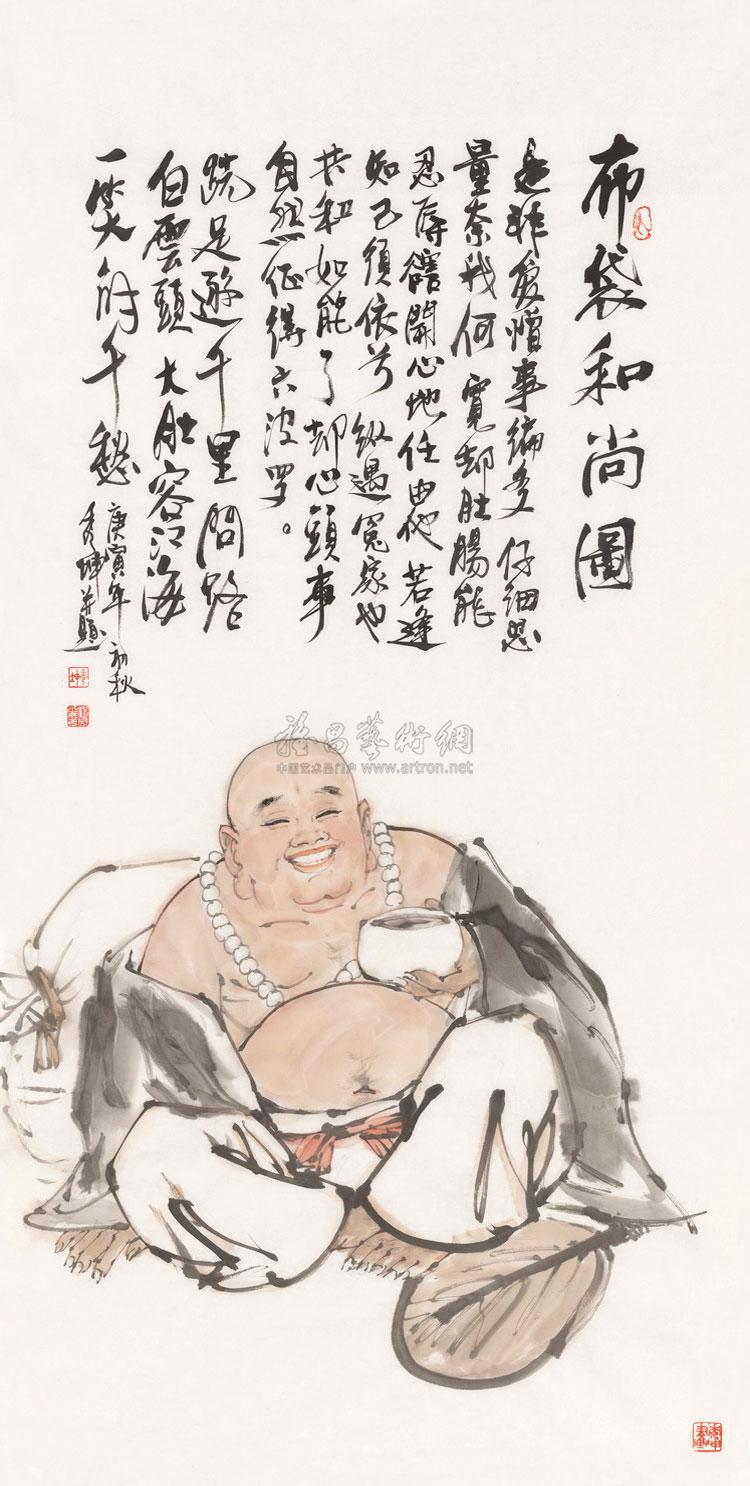 布袋和尚圖
是非爱憎事偏多 仔細思
量奈我何 寬却肚腸能
忍辱 豁開心地任由他 若逢
知己須依分 纵遇冤家也
共和 如能了却心頭事
自然征得六波罗。
跣足遊千里 問路
白雲頭 大肚容江海
一笑解千愁
庚寅年初秋
秀坤並題
雅昌藝術網
中国艺术品门户 www.artron.net